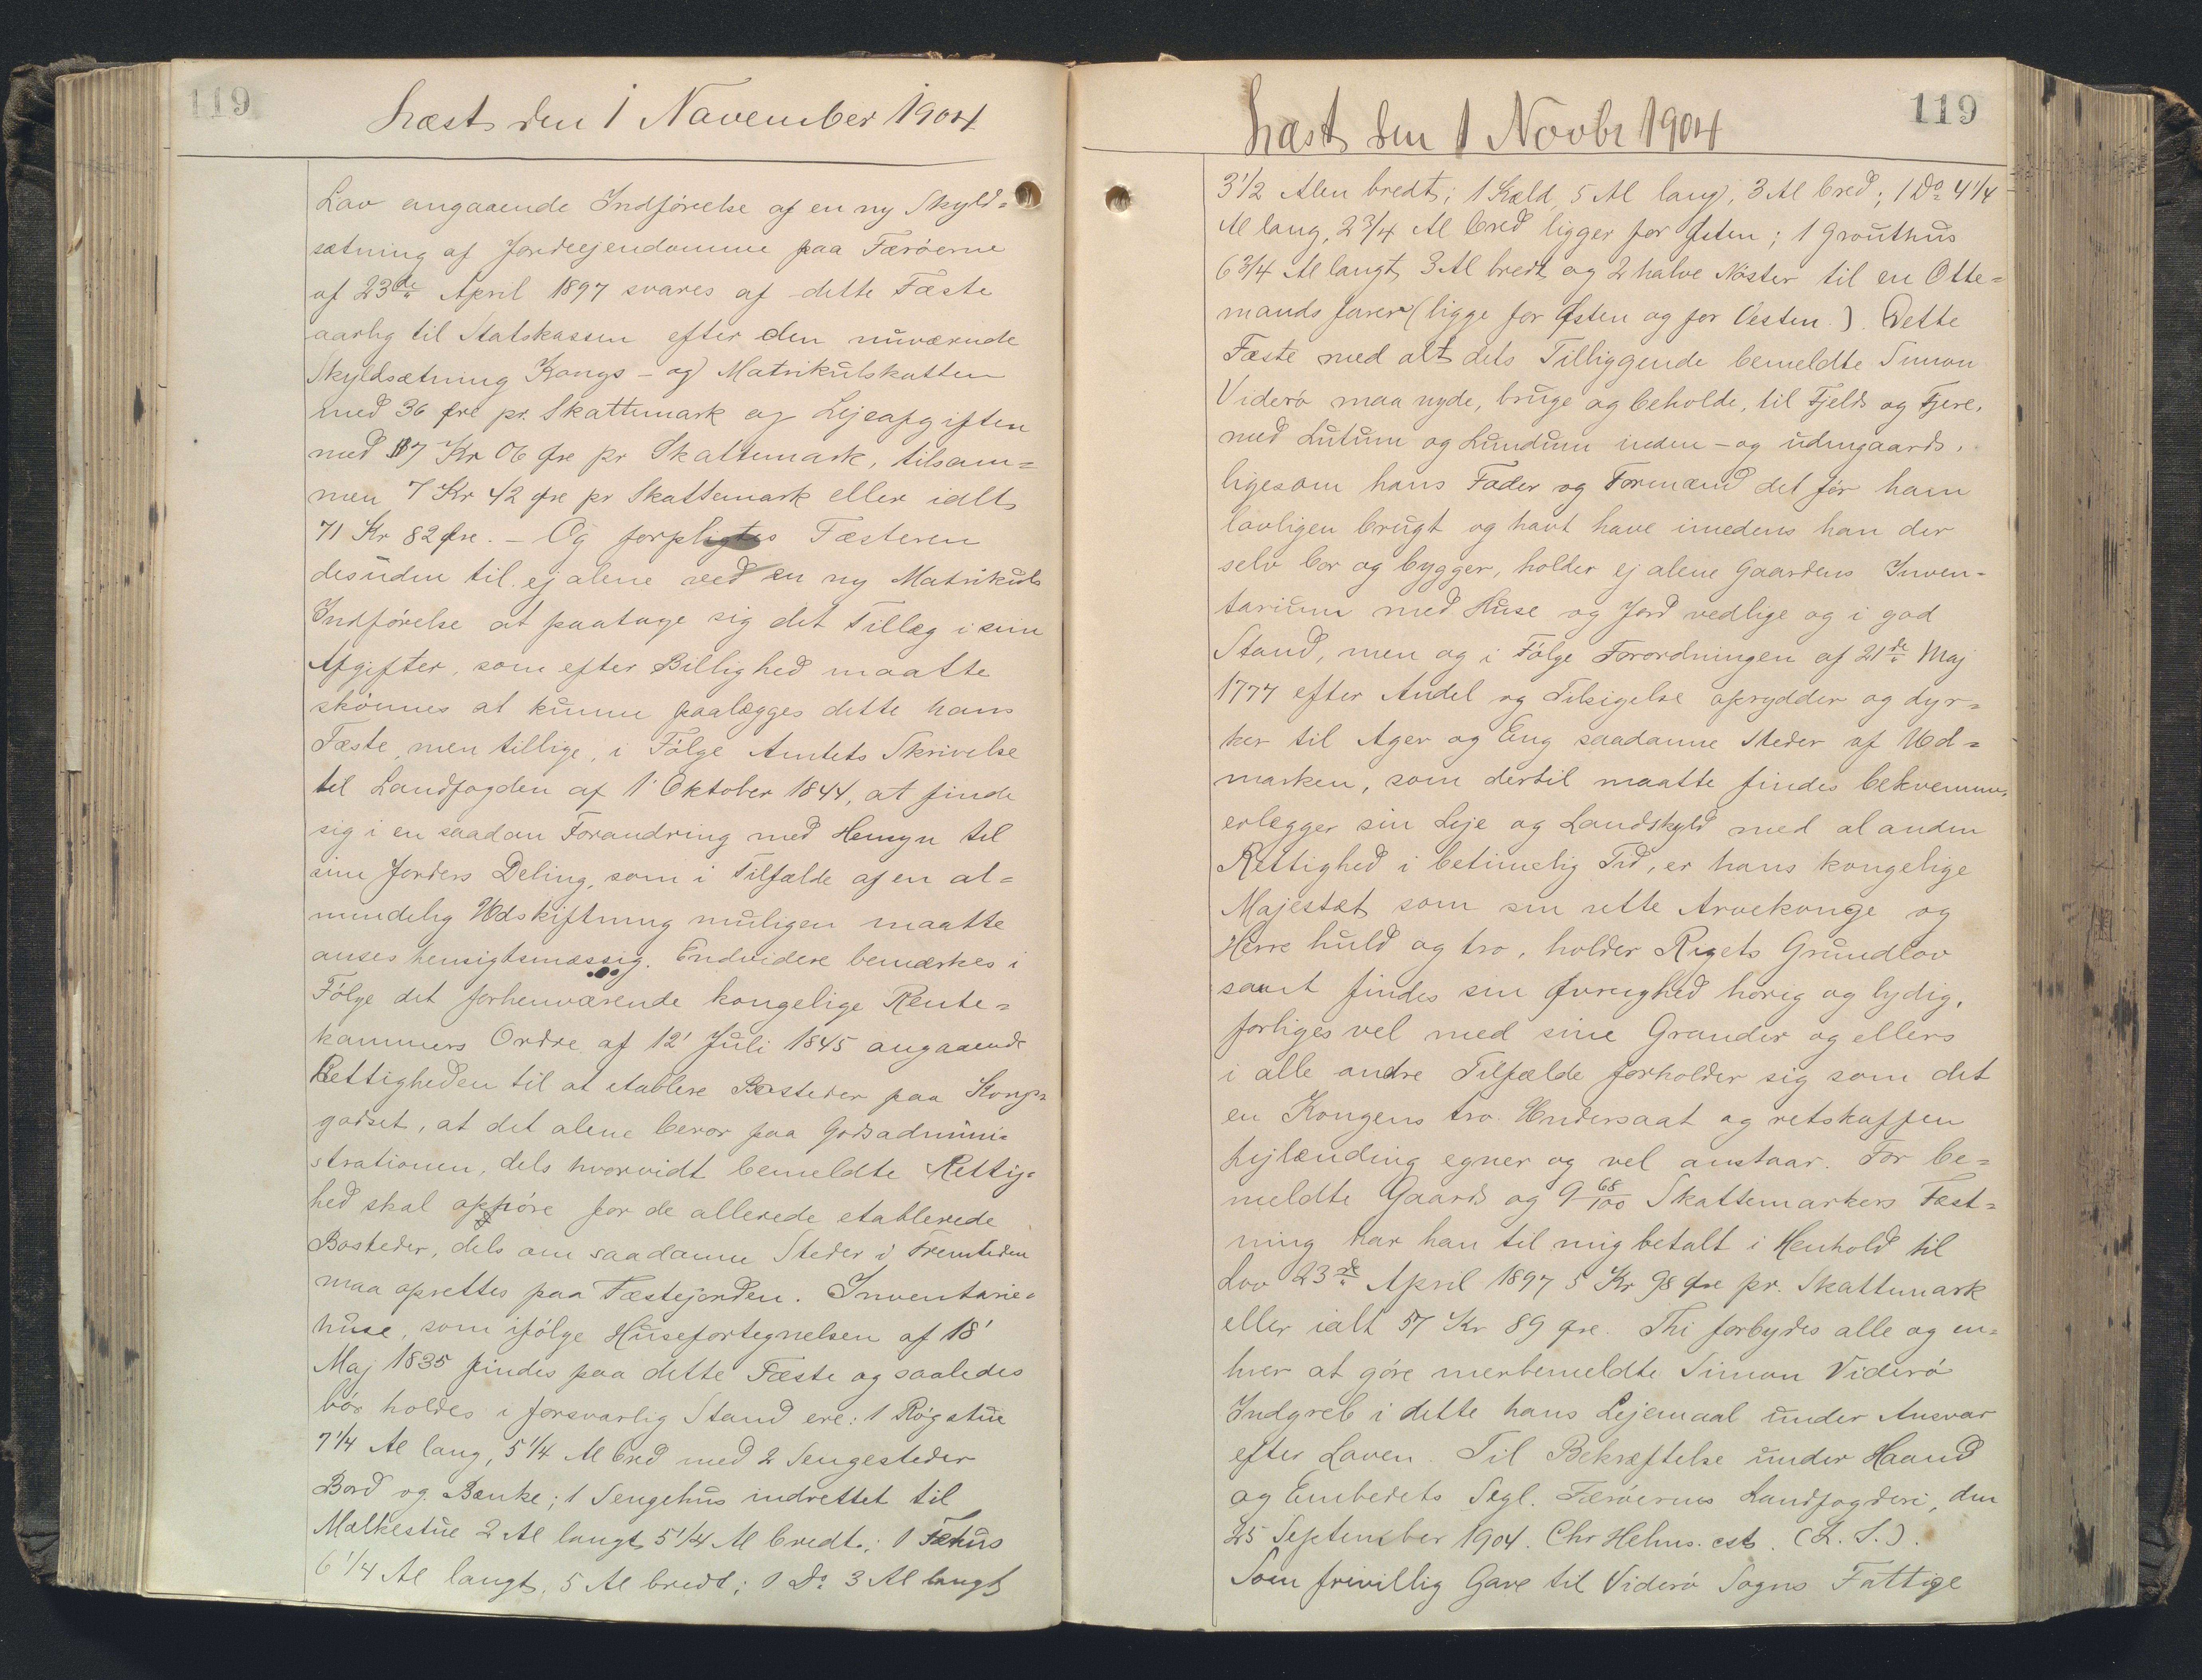 119
Læst den 1 November 1904
Lov angaaende Indførelse af en ny Skyld=
sætning af Jordejendomme paa Færöerne
af 23de April 1897 svares af dette Fæste
aarlig til Statskassen efter den nuværende
Skyldsætning Kongs- og Matrikulskatten
med 36 Øre pr. Skattemark og Lejeafgiften
med 7 Kr 06 Øre pr Skattemark, tilsam=
men 7 Kr 42 Øre pr Skattemark eller ialt
71 Kr 82 Øre. - Og forpligtes Fæsteren
desuden til ej alene ved en ny Matrikuls
Indförelse at paatage sig det Tillæg i sine
Afgifter, som efter Billighed maatte
skönnes at kunne paalægges dette hans
Fæste, men tillige, i Fölge Amtets Skrivelse
til Landfogden af 1' Oktober 1844, at finde
sig i en saadan Forandring med Hensyn til
sine Jorders Deling, som i Tilfælde af en al=
mindelig Udskiftning muligen maatte
anses hensigtsmæssig. Endvidere bemærkes i
Fölge det forhenværende kongelige Rente=
kammers Ordre af 12' Juli 1845 angaaende
Rettigheden til at etablere Bosteder paa Kongs=
godset, at det alene beror paa Godsadmini=
strationen, dels hvorvidt bemeldte Rettig=
hed skal ophöre for de allerede etablerede
Bosteder, dels om saadanne Steder i Fremtiden
maa oprettes paa Fæstejorden. Inventarie=
huse, som ifölge Husefortegnelsen af 18'
Maj 1835 findes paa dette Fæste og saaledes
bör holdes i forsvarlig Stand ere: 1 Rögstue
7 1/4 Al lang, 5 1/4 Al bred med 2 Sengesteder
Bord og Bænke; 1 Sengehus indrettet til
Malkestue 2 Al langt 5 1/4 Al bredt; 1 Fæhus
6 1/4 Al langt, 5 Al bredt; 1 Do 3 Al langt
119
Læst den 1 Novbr 1904
3 1/2 Alen bredt; 1 Kæld, 5 Al lang, 3 Al bred; 1 Do 4 1/4
Al lang, 2 3/4 Al bred ligger for Østen; 1 Grouthus
6 3/4 Al langt 3 Al bredt og 2 halve Nöster til en Otte=
mands farer (ligge for Østen og for Vesten.). Dette
Fæste med alt dets Tilliggende bemeldte Simon
Viderö maa nyde, bruge og beholde, til Fjeld og Fjere,
med Lutum og Lundum inden- og udengaards,
ligesom hans Fader og Formænd det för ham
lovligen brugt og havt have imedens han der
selv bor og bygger, holder ej alene Gaardens Inven-
tarium med Huse og Jord vedlige og i god
Stand, men og i Fölge Forordningen af 21de Maj
1777 efter Andel og Tilsigelse oprydder og dyr=
ker til Ager og Eng saadanne Steder af Ud=
marken, som dertil maatte findes bekvemme,
erlægger sin Leje og Landskyld med al anden
Rettighed i betimelig Tid, er hans kongelige
Majestæt som sin rette Arvekonge og
Herre huld og tro, holder Rigets Grundlov
samt findes sin Øvrighed hörig og lydig,
forliges vel med sine Grander og ellers
i alle andre Tilfælde forholder sig som det
en Kongens tro Undersaat og retskaffen
Lejlænding egner og vel anstaar. For be=
meldte Gaard og 9 68/100 Skattemarkers Fæst=
ning har han til mig betalt i Henhold til
Lov 23de April 1897 5 Kr 98 Øre pr. Skattemark
eller ialt 57 Kr 89 Øre. Thi forbydes alle og en=
hver at göre merbemeldte Simon Viderö
Indgreb i dette hans Lejemaal under Ansvar
efter Loven. Til Bekræftelse under Haand
og Embedets Segl. Færöernes Landfogderi, den
25 September 1904. Chr Helms. cst. (L. S.).
Som frivillig Gave til Viderö Sogns Fattige